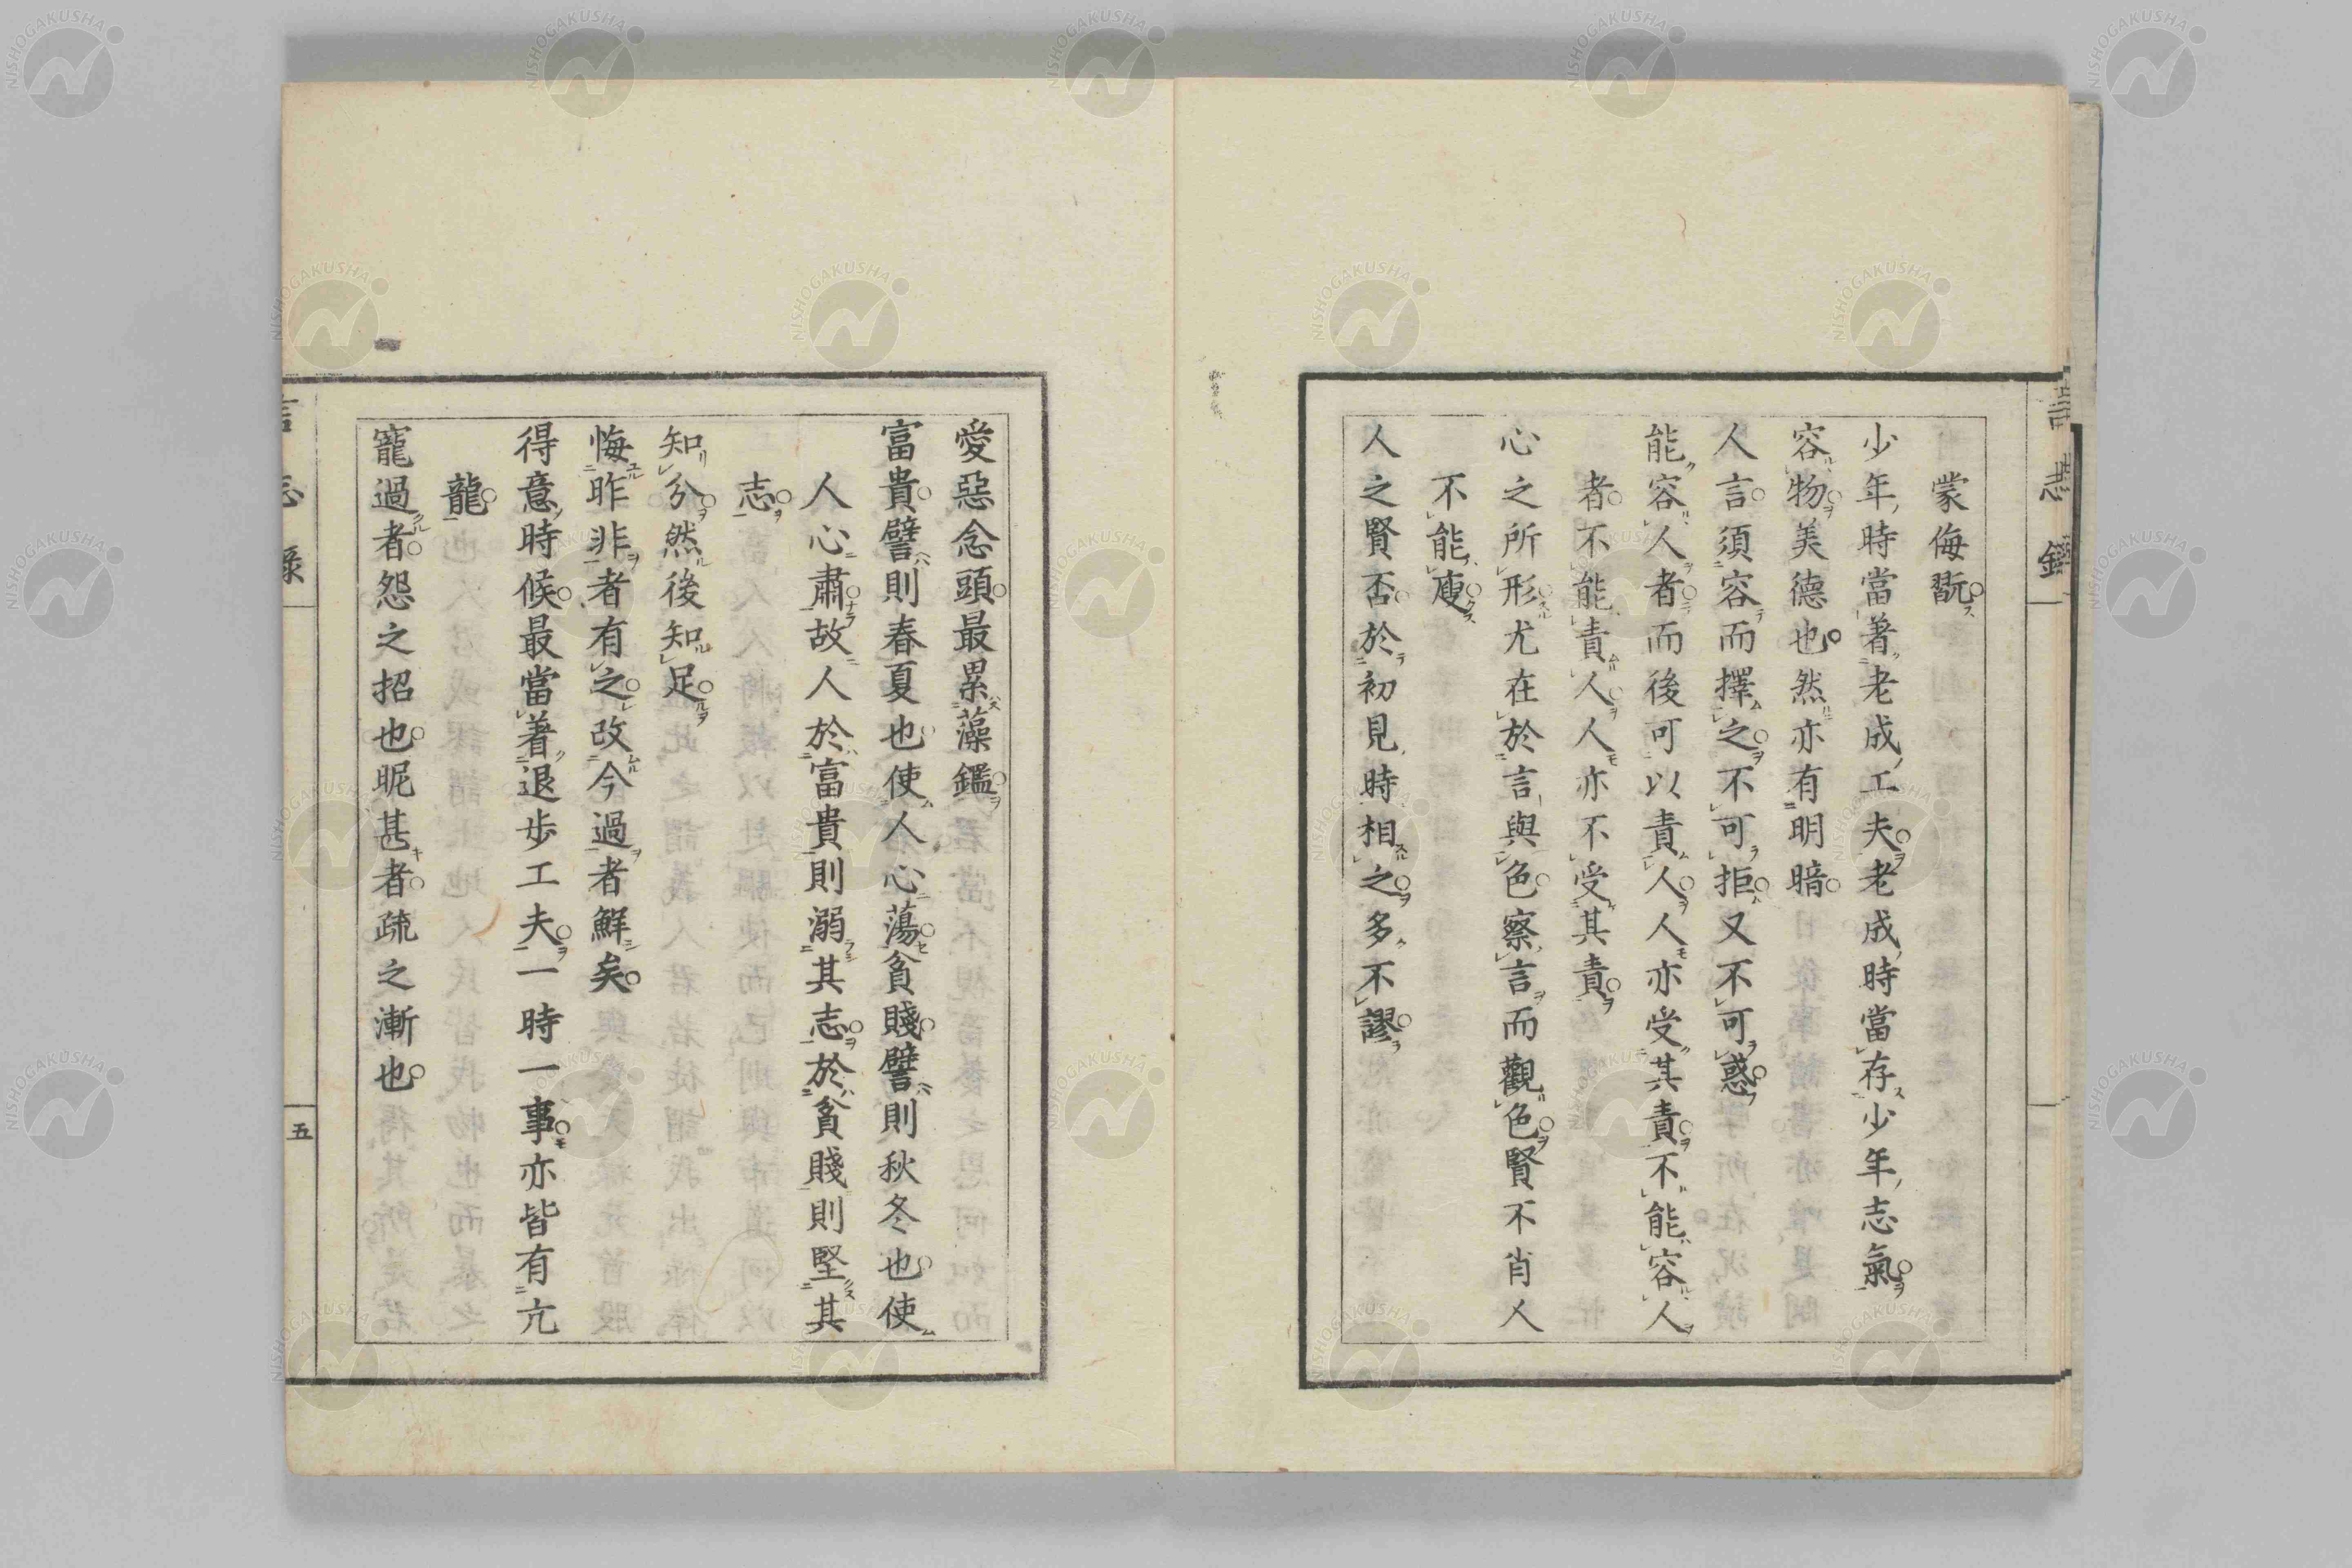 蒙侮翫
少年時當著老成工夫老成時當存少年志氣
容物美德也然亦有明暗
人言須容而擇之不可拒又不可惑
能容人者而後可以責人人亦受其責不能容人
者不能責人人亦不受其責
心之所形尤在於言與色察言而觀色賢不肖人
不能廋
人之賢否於初見時相之多不謬
愛惡念頭最累藻鑑
富貴譬則春夏也使人心蕩貧賤譬則秋冬也使
人心肅故人於富貴則溺其志於貧賤則堅其
志
知分然後知足
悔昨非者有之改今過者鮮矣
得意時候最當著退步工夫一時一事亦皆有亢
龍
寵過者怨之招也昵甚者疏之漸也
五
NISHOGAKUSHA